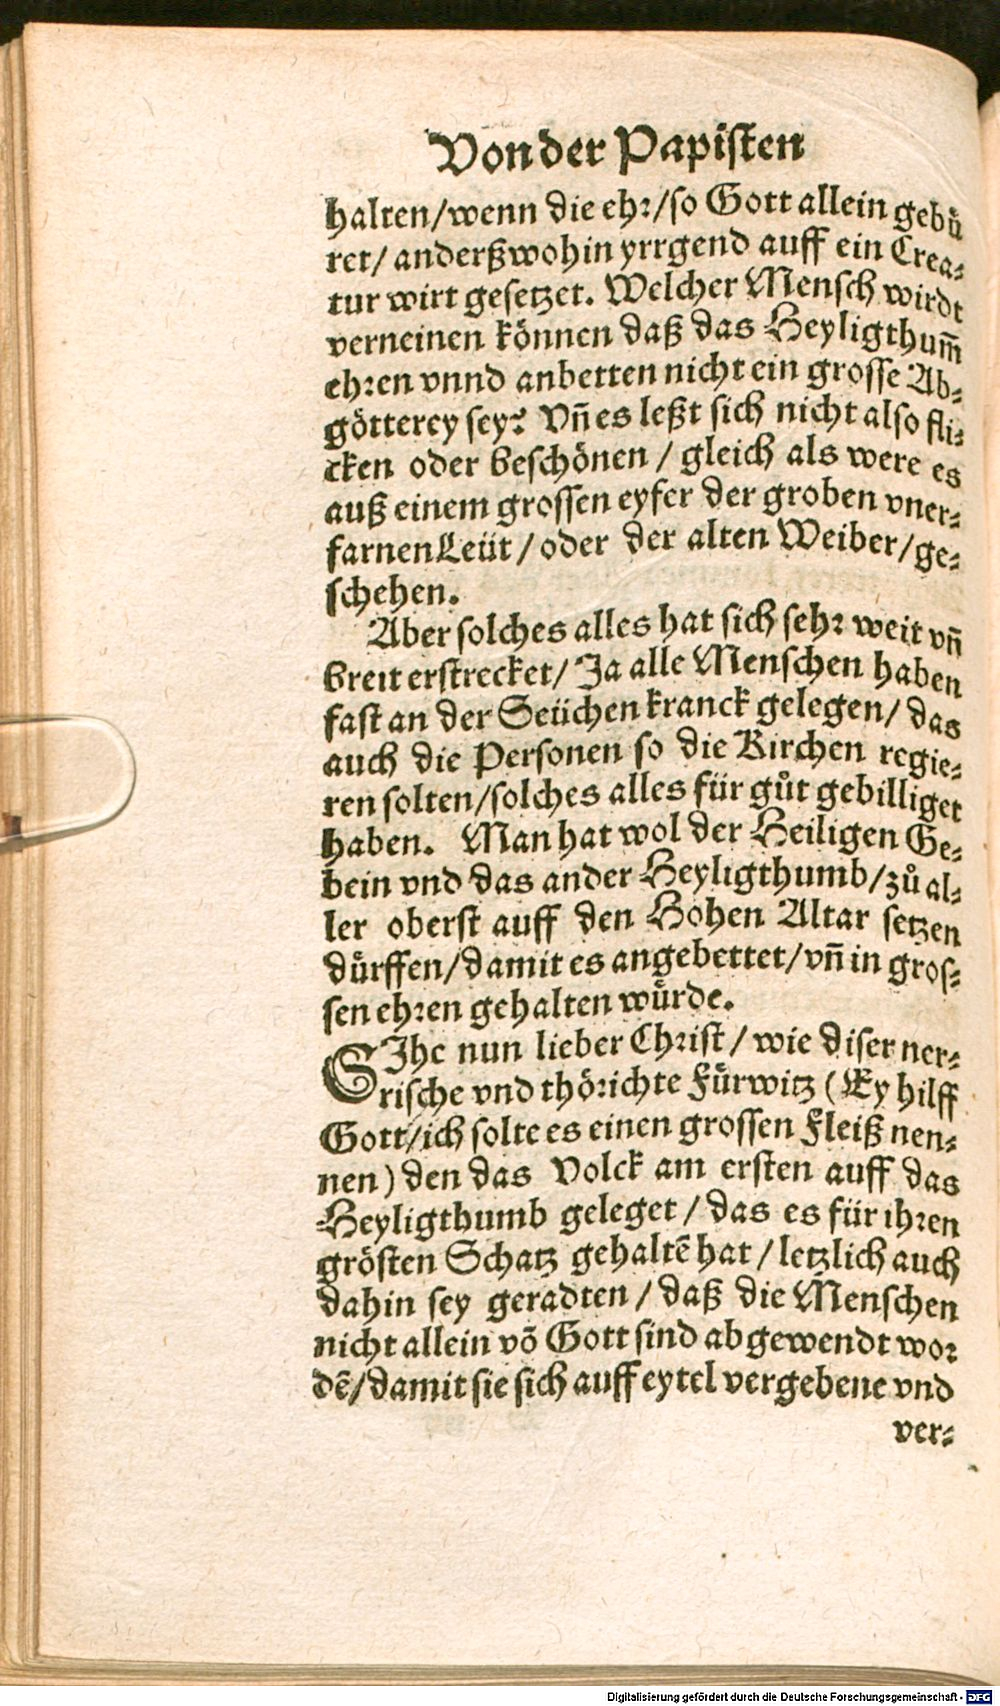 Von der Papisten
halten/wenn die ehr/so Gott allein gebuͤ
ret/ anderßwohin yrrgend auff ein Crea⸗
tur wirt gesetzet. Welcher Mensch wirdt
verneinen koͤnnen daß das Heyligthum̄
ehren vnnd anbetten nicht ein grosse Ab⸗
goͤtterey sey? Vn̄ es leßt sich nicht also fli⸗
cken oder beschoͤnen / gleich als were es
auß einem grossen eyfer der groben vner⸗
farnen Leuͤt / oder der alten Weiber/ge⸗
schehen.
Aber solches alles hat sich sehr weit vn̄
breit erstrecket/ Ja alle Menschen haben
fast an der Seuͤchen kranck gelegen/ das
auch die Personen so die Kirchen regie⸗
ren solten/solches alles fuͤr guͦt gebilliget
haben. Man hat wol der Heiligen Ge⸗
bein vnd das ander Heyligthumb/zuͦ al⸗
ler oberst auff den Hohen Altar setzen
duͤrffen/damit es angebettet/vn̄ in gros⸗
sen ehren gehalten wuͤrde.
SIhe nun lieber Christ / wie diser ner⸗
rische vnd thoͤrichte Fuͤrwitz (Ey hilff
Gott/ich solte es einen grossen Fleiß nen⸗
nen) den das Volck am ersten auff das
Heyligthumb geleget / das es fuͤr ihren
groͤsten Schatz gehaltē hat / letzlich auch
dahin sey geradten / daß die Menschen
nicht allein võ Gott sind abgewendt wor
dē/damit sie sich auff eytel vergebene vnd
ver⸗
Digitalisierung gefördert durch die Deutsche Forschungsgemeinschaft - DFG